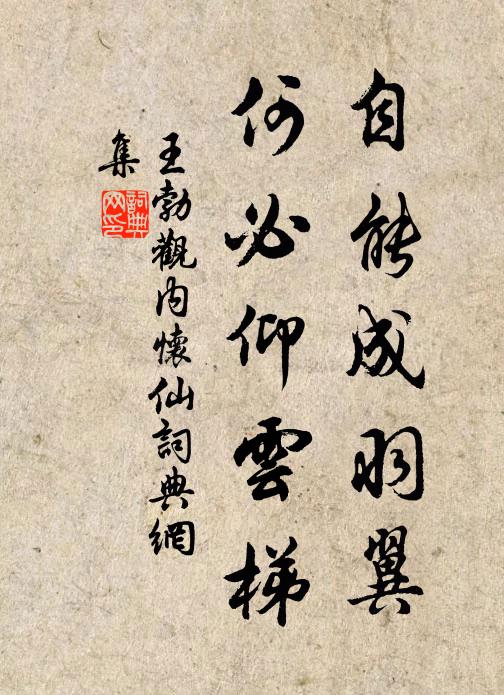 自能成羽翼
何必仰雲梯
王勃觀內懷仙詞典網
集
詞典
网印